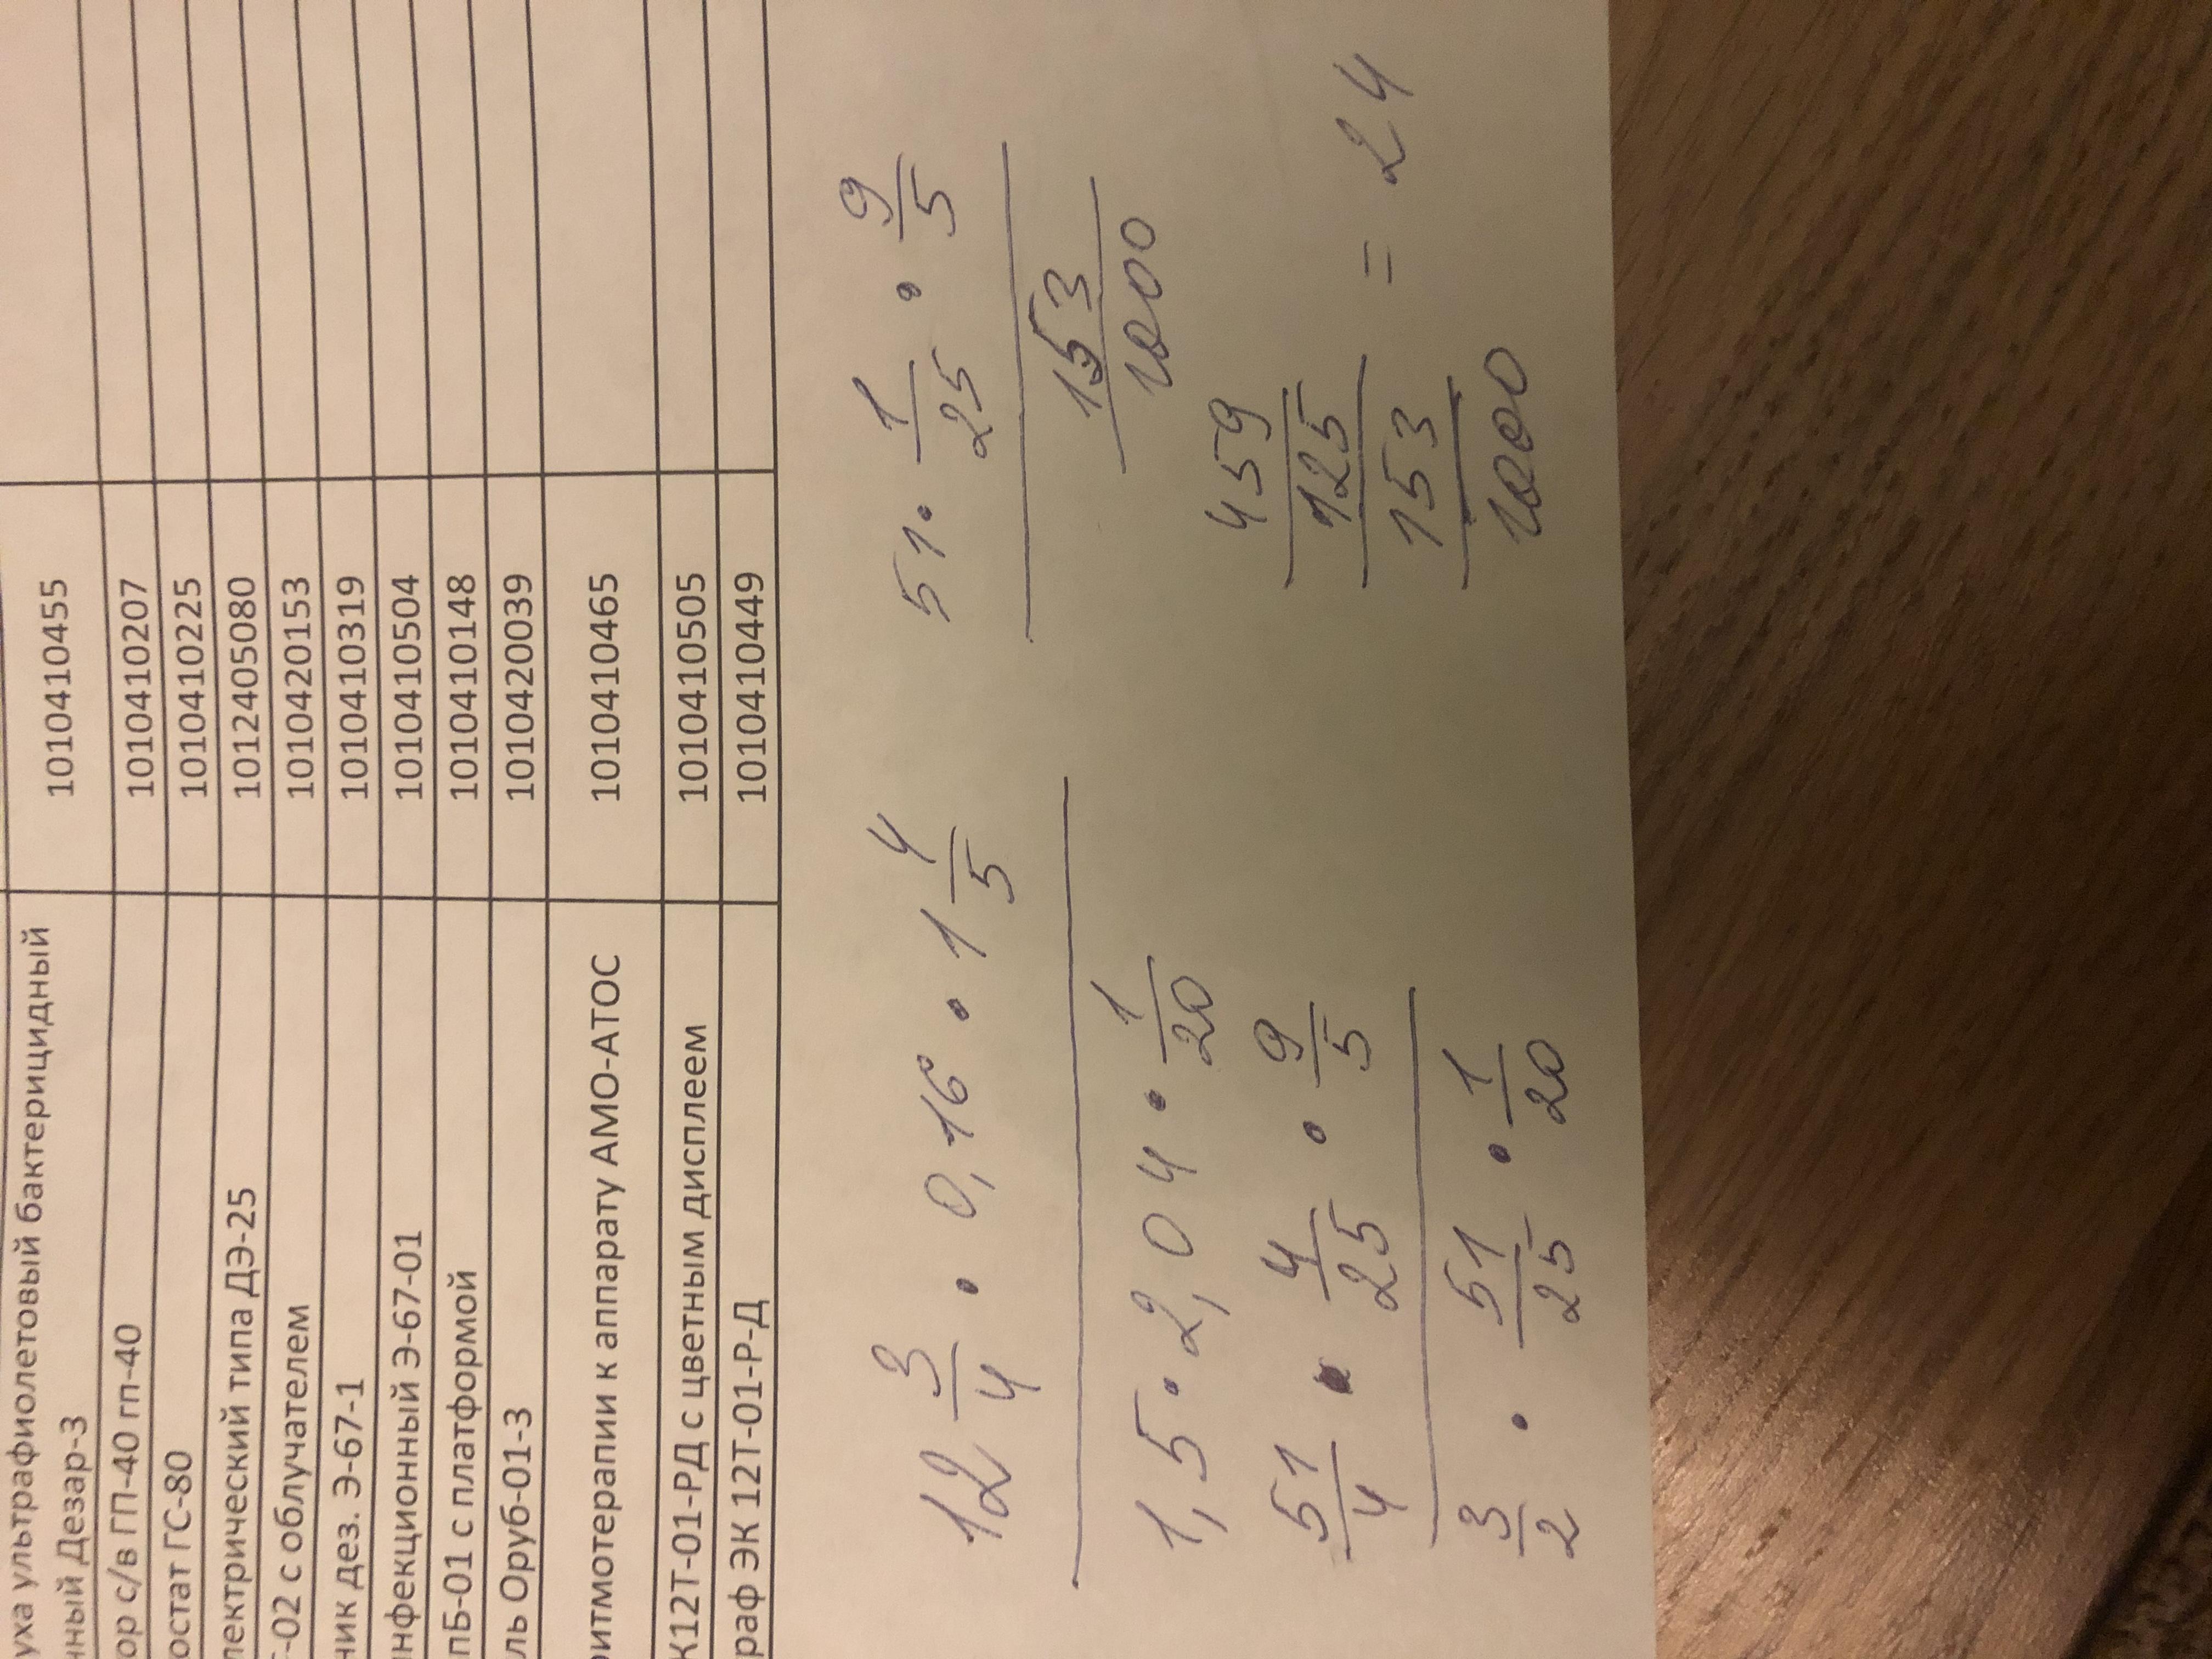 уха ультрафиолетовый бактерицидный
нный Дезар-3 1010410455
ор с/в ГП-40 гп-40 1010410207
остат ГС-80 1010410225
лектрический типа ДЭ-25 1012405080
-02 с облучателем 1010420153
ник дез. Э-67-1 1010410319
нфекционный Э-67-01 1010410504
пБ-01 с платформой 1010410148
ль Оруб-01-3 1010420039
ритмотерапии к аппарату АМО-АТОС 1010410465
К12Т-01-РД с цветным дисплеем 1010410505
раф ЭК 12Т-01-Р-Д 1010410449
12 3/4 · 0,16 · 1 4/5
1,5 · 2,04 · 1/20
51/4 · 4/25 · 9/5
3/2 · 51/25 · 1/20
51 · 1/25 · 9/5
153/1000
459/125
153/1000 = 24